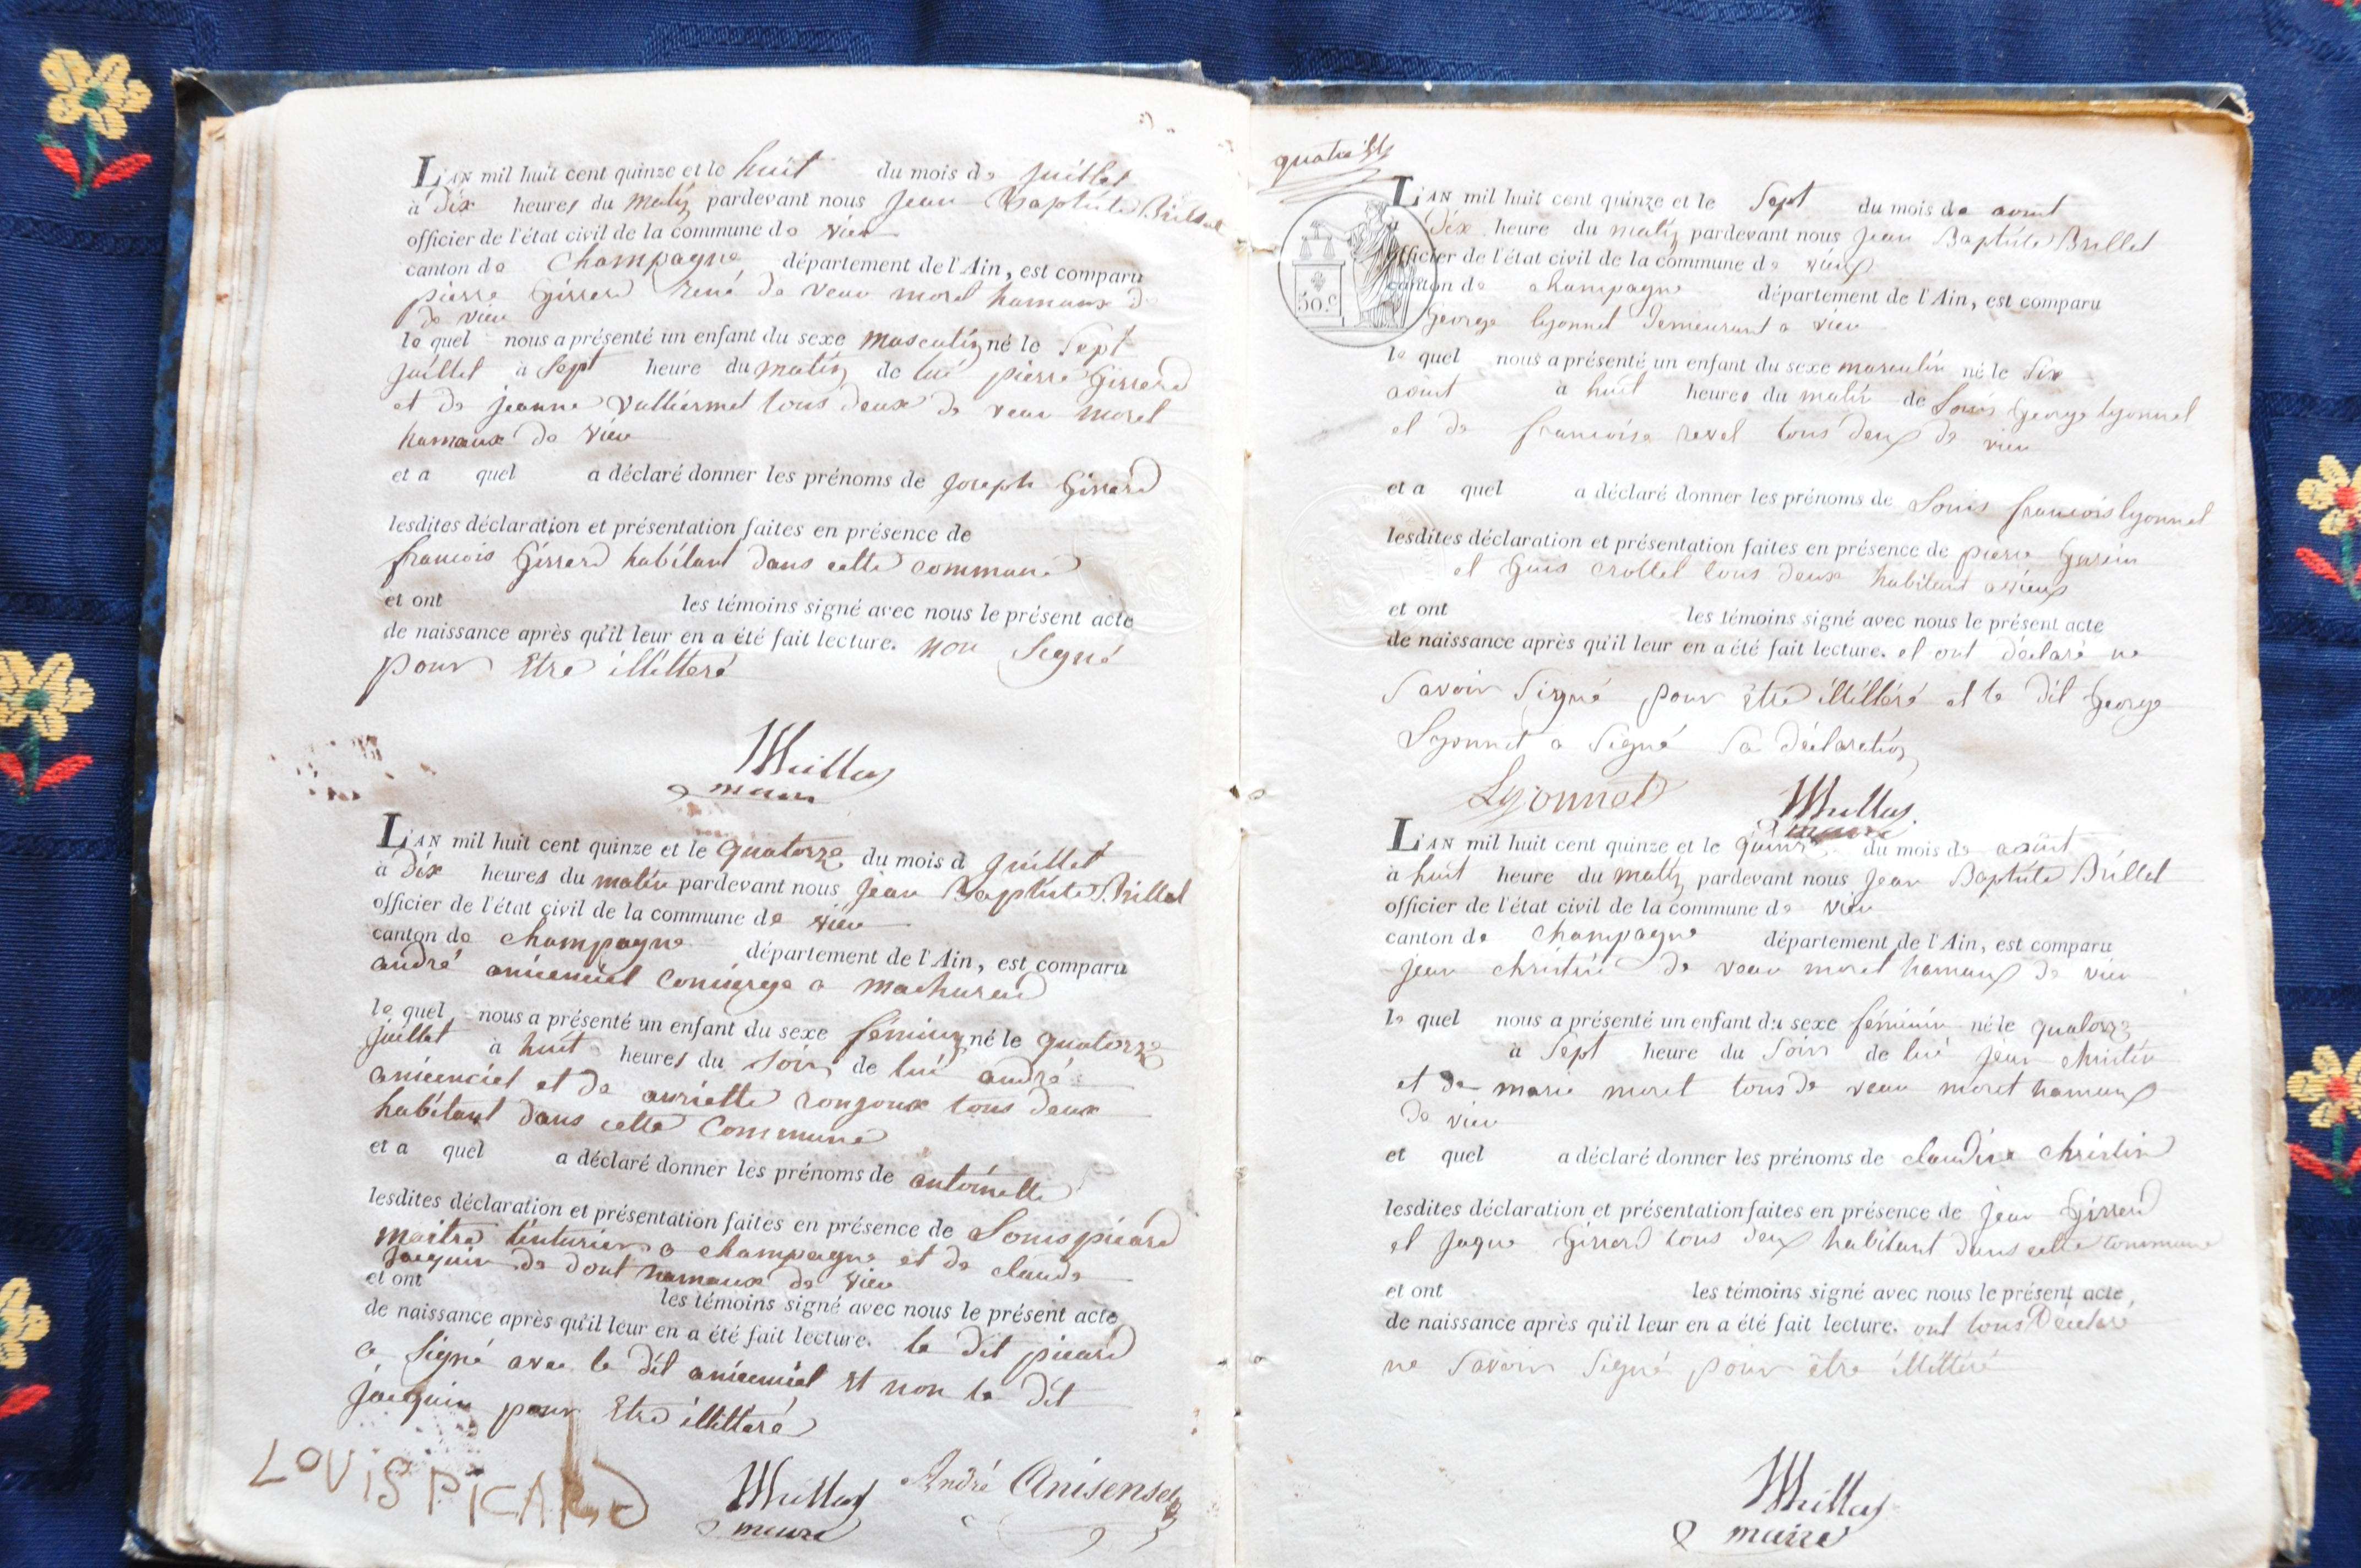 L'AN mil huit cent quinze et le huit du mois de juillet
à dix heures du matin pardevant nous jean Baptiste Brillat
officier de l'état civil de la commune de vieu
canton de Champagne département de l'Ain, est comparu
pierre Girrerd de veau morel hamaux de
de vieu
le quel nous a présenté un enfant du sexe masculin né le sept
juillet à sept heure du matin de lui pierre Girrerd
et de jeanne Vulliermet tous deux de veau morel
hamaux de vieu
et a quel a déclaré donner les prénoms de joseph Girrerd
lesdites déclaration et présentation faites en présence de
francois Girrerd habitant dans cette commune
et ont les témoins signé avec nous le présent acte
de naissance après qu'il leur en a été fait lecture. non signé
pour être illitteré
maire
L'AN mil huit cent quinze et le quatorze du mois d juillet
à dix heures du matin pardevant nous jean Baptiste Brillat
officier de l'état civil de la commune de vieu
canton de champagne département de l'Ain, est comparu
andré concierge a machuraud
le quel nous a présenté un enfant du sexe féminin né le quatorze
juillet à huit heures du soir de lui andré
et de tous deux
habitant dans cette commune
et a quel a déclaré donner les prénoms de antoinette
lesdites déclaration et présentation faites en présence de Louis picard
maitre tinturier a champagne et de claude
jacquin de dont hamaux de vieu
et ont les témoins signé avec nous le présent acte
de naissance après qu'il leur en a été fait lecture. le dit picard
a signé avec le dit et non le dit
jacquin pour être illitteré
LOUIS PICARD
André Anisensel
maire
quatre
50 C.
L'AN mil huit cent quinze et le sept du mois de aout
dix heure du matin pardevant nous jean Baptiste Brillat
officier de l'état civil de la commune de vieux
canton de champagne département de l'Ain, est comparu
George lyonnet demeurant a vieu
le quel nous a présenté un enfant du sexe masculin né le six
aout à huit heures du matin de Louis George lyonnet
et de francoise revel tous deux de vieu
et a quel a déclaré donner les prénoms de Louis francois lyonnet
lesdites déclaration et présentation faites en présence de pierre
et crottet tous deux habitant a vieux
et ont les témoins signé avec nous le présent acte
de naissance après qu'il leur en a été fait lecture. et ont déclaré ne
savoir signé pour être illitéré et le dit George
Lyonnet a signé sa déclaration
Lyonnet
maire
L'AN mil huit cent quinze et le quinze du mois de aout
à huit heure du matin pardevant nous jean Baptiste Brillat
officier de l'état civil de la commune de vieu
canton de Champagne département de l'Ain, est comparu
jean christin de veau morel hamaux de vieu
le quel nous a présenté un enfant du sexe féminin né le quatorze
à sept heure du soir de lui jean christin
et de marie morel tous de veau morel hamaux
de vieu
et quel a déclaré donner les prénoms de claudine christin
lesdites déclaration et présentation faites en présence de jean Girrerd
et jaque Girrerd tous deux habitant dans cette commune
et ont les témoins signé avec nous le présent acte
de naissance après qu'il leur en a été fait lecture. ont tous déclaré
ne savoir signé pour être illittéré
maire